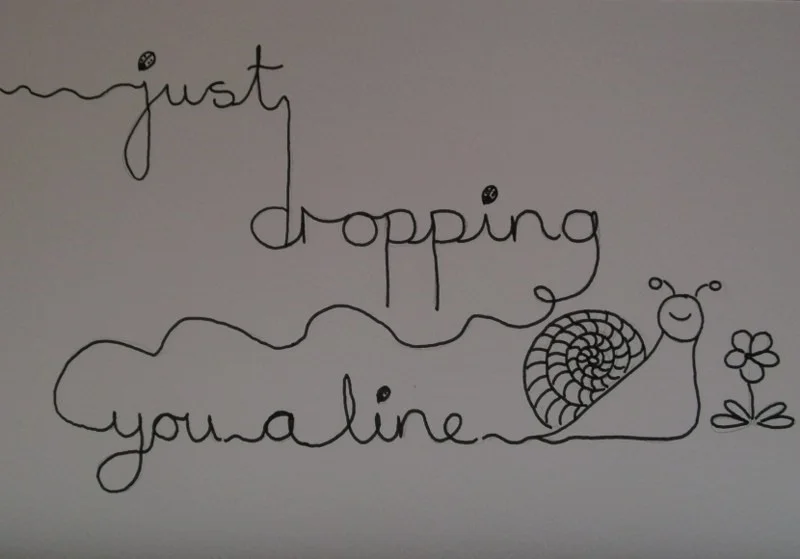 just
dropping
you a line